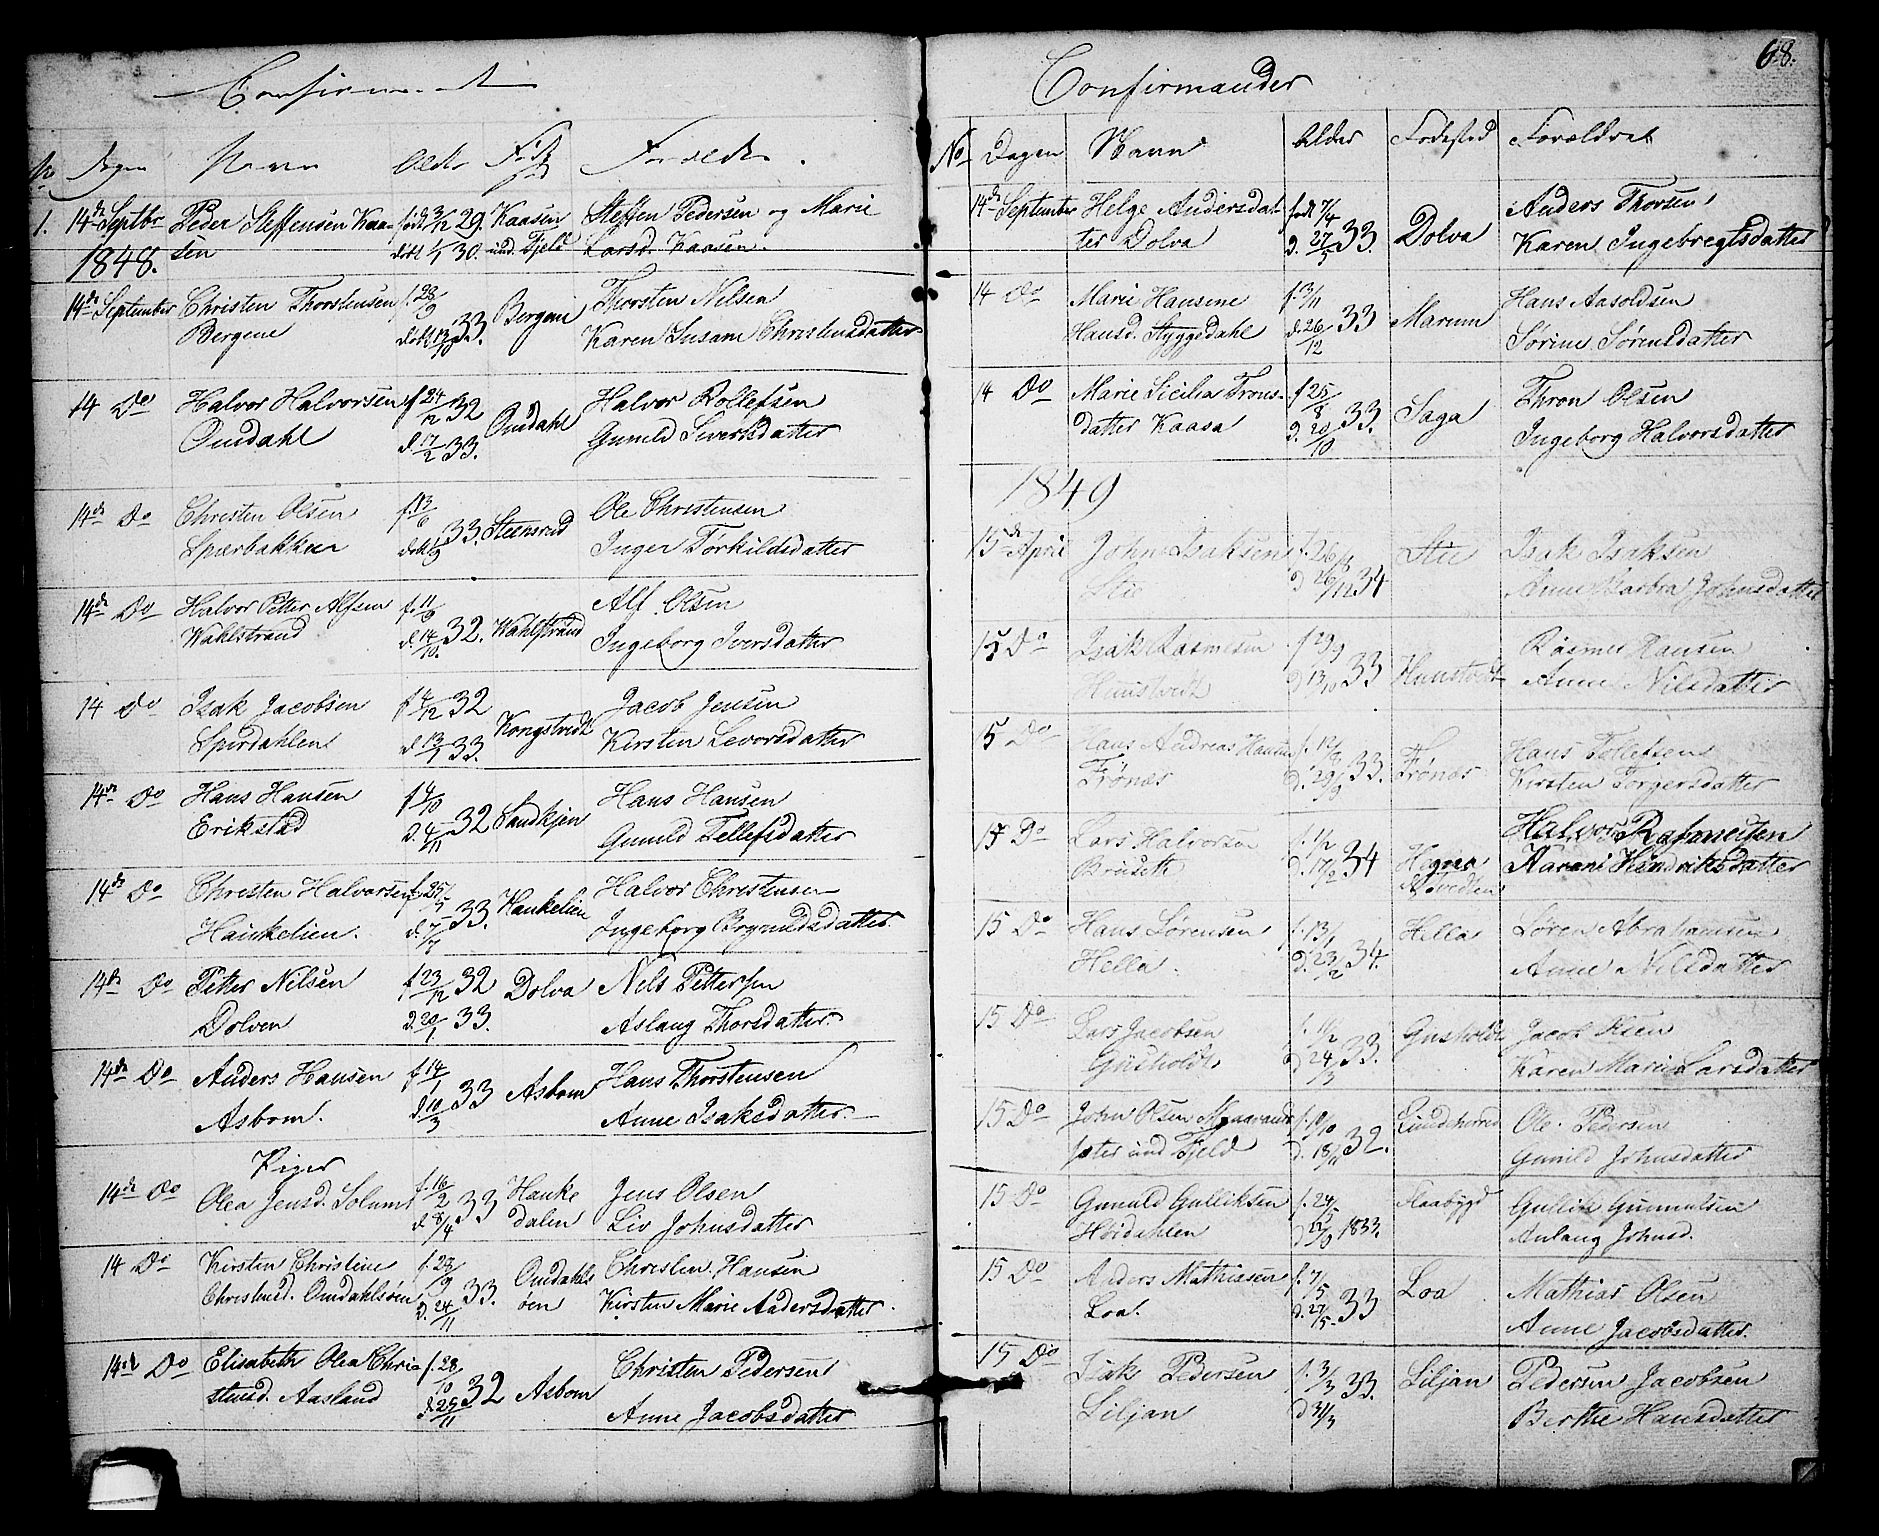 Confirmanter
No Dagen Navn Alder Føde sted Forældre.
1. 14de Septbr Peder Steffensen Kaa- født 3/12 29. Kaasen Steffen Pedersen og Marie
1848. sen døbt 1/1 30. ind. Fjeld Larsd. Kaasen.
14de September Christen Thorstensen f. 28/9 Bergene Thorsten Nilsen
Bergene døbt 13/10 33. Karen Susane Christensdatter
14 Do Halvor Halvorsen f 24/12 32 Omdahl Halvor Rollefsen
Omdahl d. 17/2 33. Gunild Siversdatter
14de Do Christen Olsen f. 13/6 33. Steensrud Ole Christensen
Spærbakken døbt 1/9 Inger Tørkildsdatter
14de Do Halvor Petter Alfsen f. 11/9 Wahlstrand Alf Olsen
Wahlstrand d. 14/10 32. Ingeborg Iversdatter
14 Do Isak Jacobsen 32 Kongstvedt Jacob Jensen
Spirdahlen d. 13/1 33. Kirsten Levorsdatter
14de Do Hans Hansen Sandkjen Hans Hansen
Erikstad d. 4/11 32 Gunild Tellefsdatter
14de Do Christen Halvorsen f. 25/5 33. Haukelien Halvor Christensen
Haukelien. d. 7/7 Ingeborg Brynildsdatter.
14de Do Petter Nilsen f 23/12 32 Dolva Nels Pettersen
Dolven d. 20/1 33. Aslaug Thorsdatter.
14de Do Anders Hansen f 14/1 33 Asbom Hans Thorstensen
Asbom. d. 10/3 Anne Isaksdatter.
Piger
14de Do Olea Jensd. Solum f. 16/2 33 Hauke Jens Olsen
d 8/4 dalen Liv Johnsdatter
14 Do Kirsten Christine f. 23/9 33. Omdahls Christen Hansen
Christensd. Omdahlsøen d. 24/11 øen Kirsten Marie Andersdatter.
14de Do Elisabeth Olea Chri- f. 28/10 32 Asbom Christen Pedersen
stensd. Aasland d 29/11 Anne Jacobsdatter
68.
Confirmander
No Dagen Navn Alder Fødested Forældre
14de September Helge Andersdat- født 7/4 33 Dolva Anders Thorsen
ter Dolva d. 27/5 Karen Ingebregtsdatter
14 Do Marie Hansine f. 3/11 33 Marum Hans Aasoldsen
Hansd. Styggedahl d. 26/12 Sørine Sørensdatter
14 Do Marie Sicilia Trons- f 25/8 33. Saga Thron Olsen
datter Kaasa d. 20/10 Ingeborg Halvorsdatter
1849
15de April John Isaksen Stie Isak Isaksen
Stie d 26/12 34 Anne Barbra Johnsdatter
15 Do Isak Rasmusen f 29/9 33 Hunstvedt Rasmus Hansen
Hunstvedt d 13/10 Anne Nilsdatter
5 Do Hans Andreas Hansen f. 12/8 33. Frönæs Hans Tollefsen
Frönæs d. 29/9 Kirsten Torgersdatter
15 Do Lars Halvorsen f. 1/2 34 Hegna Halvor Rasmussen
Bruseth d. 17/2 Karani Hendriksdatter
15 Do Hans Sørensen f. 13/1 34. Hella Søren Abrahamsen
Hella. d. 23/2 Anne Nilsdatter
15 Do Lars Jacobsen 33. Gusholdt Jacob
Gusholdt d 24/3 Karen Marie Larsdatter
15 Do John Olsen f. 10/10 32. Lundeherred Ole Pedersen
ind Fjeld d. 18/11 Gunild Johnsdatter
15 Do Gunuld Gulliksen f. 24/5 Flaabygd Gullik Gunnulsen
Høidahlen 1833. Anlaug Johnsd.
15 Do Anders Mathiasen f. 7/5 33 Loa Mathias Olsen
Loa. d. 27/5 Anne Jacobsdatter.
15 Do Isak Pedersen f. 3/3 33. Liljan Pedersen Jacobsen
Liljan d 31/3 Berthe Hansdatter